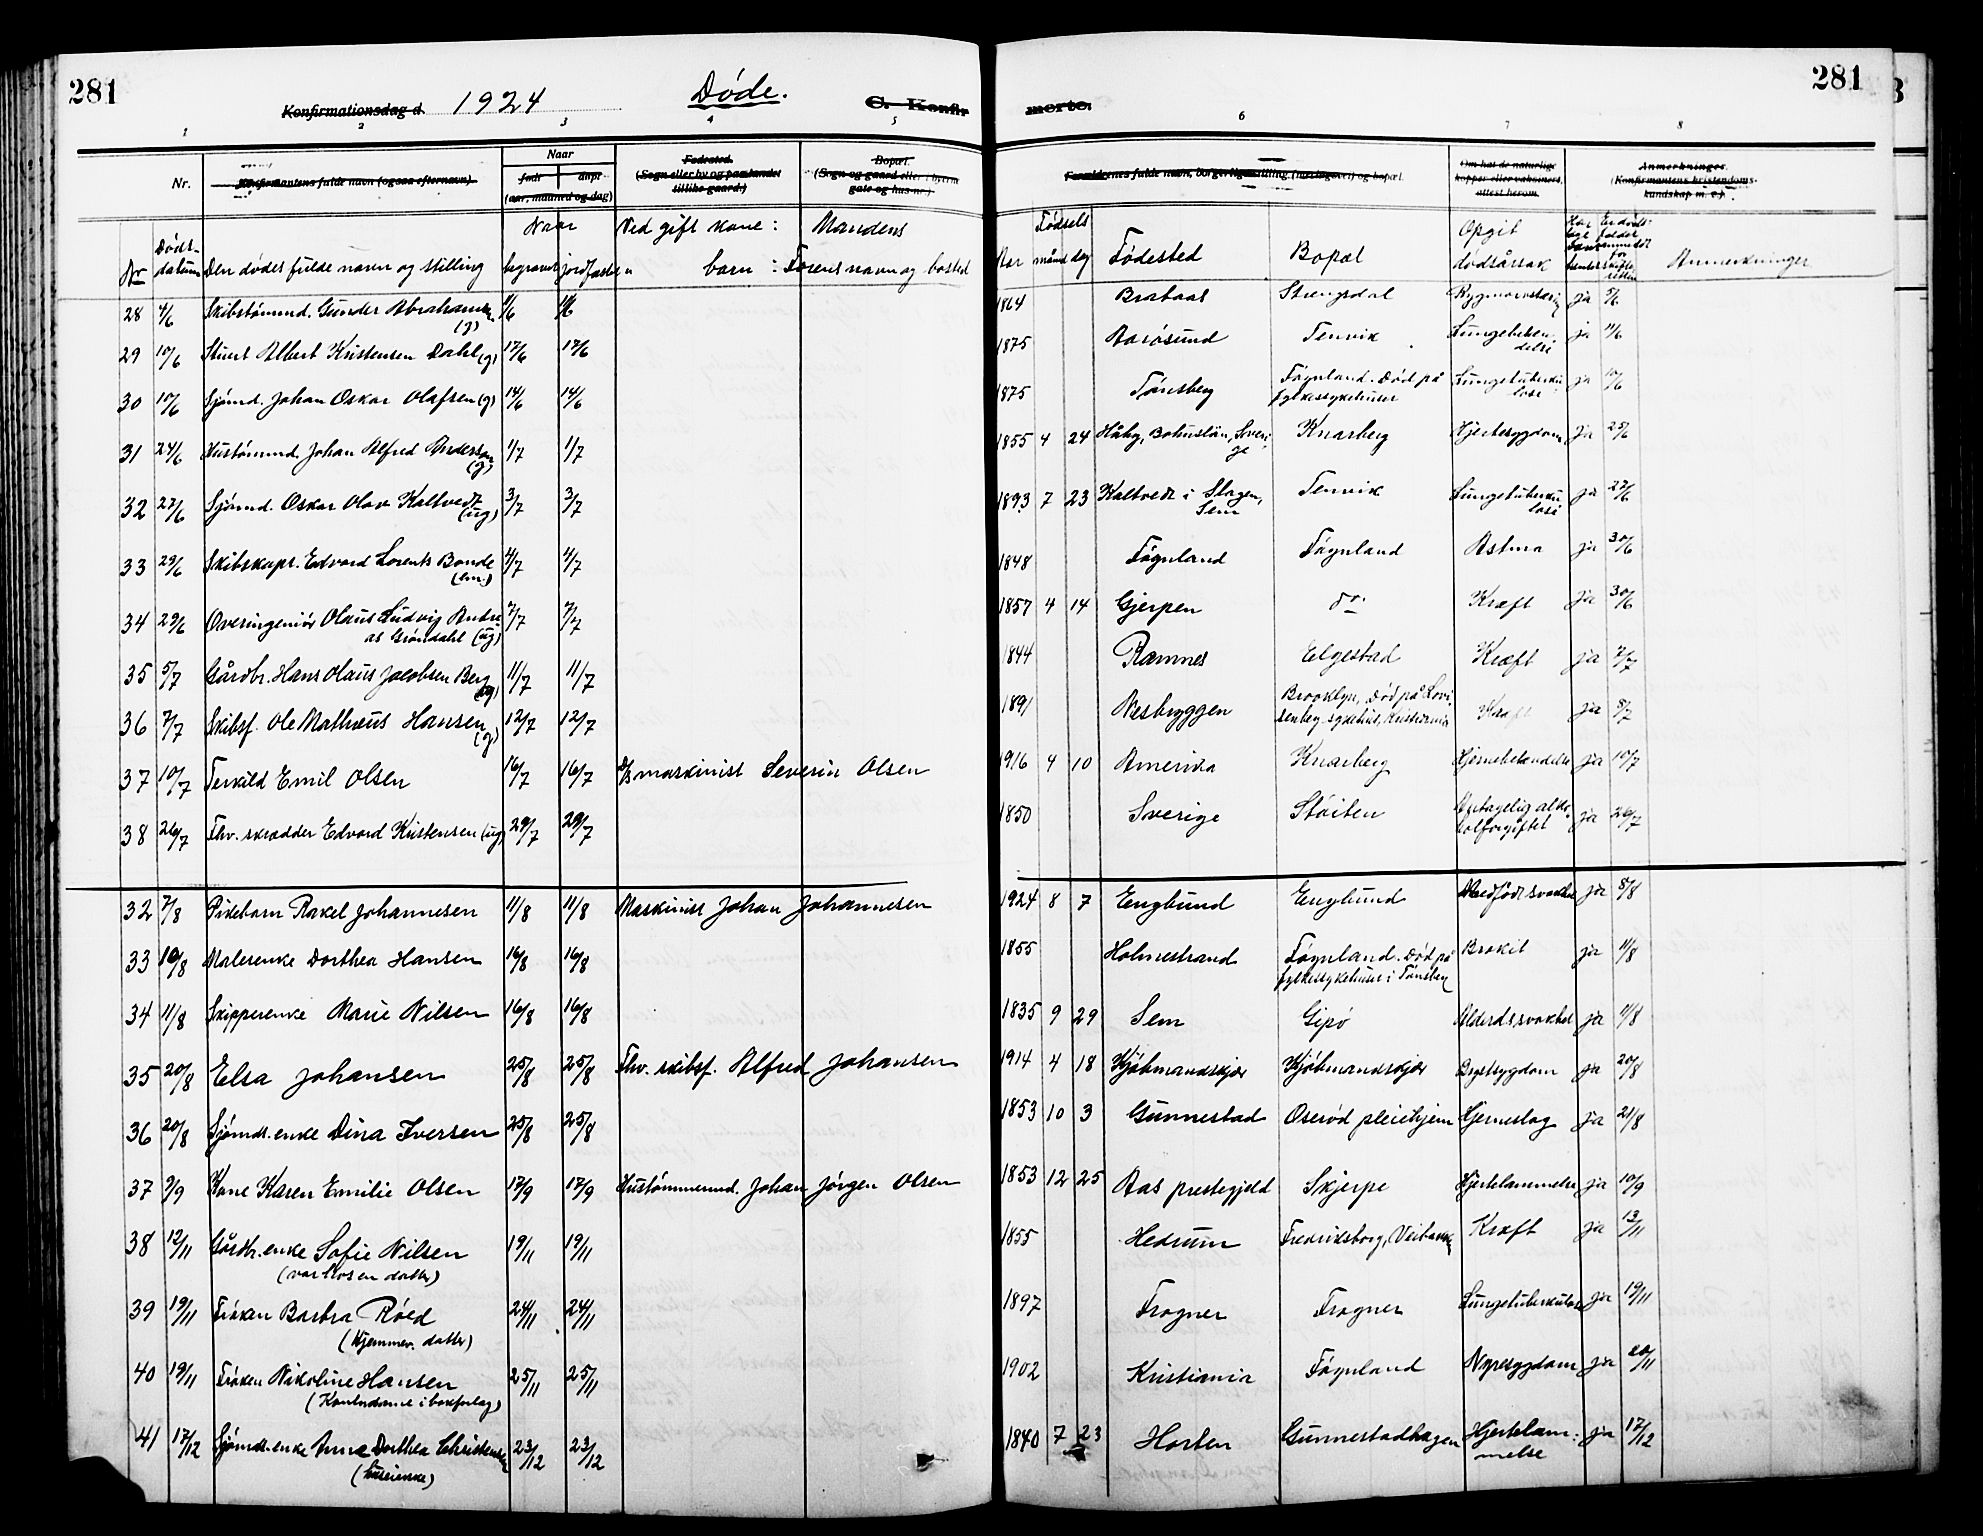 281
Konfirmationsdag d. 1924 Døde. C. Konfir
merte. 281
1 2 3 4 5
6 7 8
Nr. Konfirmantens fulde navn (ogsaa efternavn) Naar født døpt (aar, maaned og dag) Fødested. (Sogn eller by og paa landet tillike gaard.) Bopæl. (Sogn og gaard eller i byerne gate og hus-nr.)
Forældrenes fulde navn, borgerlige stilling (næringsvei) og bopæl. Om hat de naturlige kopper eller vaksinert, attest herom. Anmerkninger. (Konfirmantens kristendomskundskap m. v.)
Nr Dødsdatum Den dødes fulde navn og stilling Naar begravet jordfæstet Ved gift kone: Mandens
barn: Farens navn og bosted
Fødsels Aar måned dag Fødested Bopæl Opgit dødsårsak Anmerkninger
28 4/6 Skibstømmd. Gunder Abrahamsen (g) 11/6 11/6 1864 Brataas Strengsdal ja 5/6
29 10/6 Stuert Albert Kristensen Dahl (g) 17/6 17/6 1875 Aarøsund Tenvik ja 11/6
30 10/6 Sjømd. Johan Oskar Olafsen (g) 14/6 14/6 1875 Tønsberg Føynland. Død på fylkessykehuset Lungetuberkulose ja 10/6
31 24/6 Hustømmd. Johan Alfred Anderson (g) 1/7 1/7 1855 4 24 Håby, Bohuslän, Sverige Knarberg Hjertesygdom ja 25/6
32 27/6 Sjømd. Oskar Olav Kaltvedt (ug) 3/7 3/7 1893 7 23 Kaltvedt i Slagen, Sem Tenvik Lungetuberkulose ja 27/6
33 29/6 Skibskapt. Edvard Lorents Bonde (em.) 4/7 4/7 1848 Føynland Føynland Astma ja 30/6
34 29/6 Overingeniør Olaus Ludvig Andreas Grøndahl (ug) 7/7 7/7 1857 4 14 Gjerpen do. Kræft ja 30/6
35 5/7 Gårdbr. Hans Olaus Jacobsen Berg (ug) 11/7 11/7 1844 Ramnes Elgestad Kræft ja 7/7
36 7/7 Skibsf. Ole Mathæus Hansen (g) 12/7 12/7 1891 Næsbryggen Brooklyn, Død på Lovisenberg sykehus, Kristiania Kræft ja 8/7
37 10/7 Terkild Emil Olsen 16/7 16/7 D/s maskinist Severin Olsen 1916 4 10 Amerika Knarberg Hjernebetændelse ja 10/7
38 26/7 Fhv. skrædder Edvard Kristensen (ug) 29/7 29/7 1850 Sverige Støiten Antagelig alkoholforgiftet ja 26/7
32 7/8 Pikebarn Rakel Johannesen 11/8 11/8 Maskinist Johan Johannesen 1924 8 7 Englund Englund Medfødt svakhet ja 8/8
33 10/8 Malerenke Dorthea Hansen 16/8 16/8 1855 Holmestrand Føynland. Død på fylkessykehuset i Tønsberg Brokit ja 11/8
34 11/8 Skipperenke Marie Nilsen 16/8 16/8 1835 9 29 Sem Gipø Alderdssvakhet ja 11/8
35 20/8 Elsa Johansen 25/8 25/8 Fhv. skibsf. Alfred Johansen 1914 4 18 Kjøbmandskjær Kjøbmandskjær Brystsygdom ja 20/8
36 20/8 Sjømds. enke Dina Iversen 25/8 25/8 1853 10 3 Gunnestad Oserød pleiehjem Hjerneslag ja 21/8
37 9/9 Kone Karen Emilie Olsen 17/9 17/9 Hustømmermd. Johan Jørgen Olsen 1853 12 25 Aas prestegjeld Skjerpe Hjertelammelse ja 10/9
38 12/11 Gårdbr. enke Sofie Nilsen 19/11 19/11 1855 Hedrum Fredriksborg, Kræft ja 13/11
(var hos en datter)
39 19/11 Frøken Barbra Røed 24/11 24/11 1897 Frogner Frogner Lungetuberkulose ja 19/11
(Hjemmev. datter)
40 19/11 Frøken Nikoline Hansen 25/11 25/11 1902 Kristiania Føynland Nyresygdom ja 20/11
(Kontordame i bokforlag)
41 17/12 Sjømds. enke Anna Dorthea Christensen 23/12 23/12 1840 7 23 Horten Gunnestadhagen Hjertelammelse ja 17/12